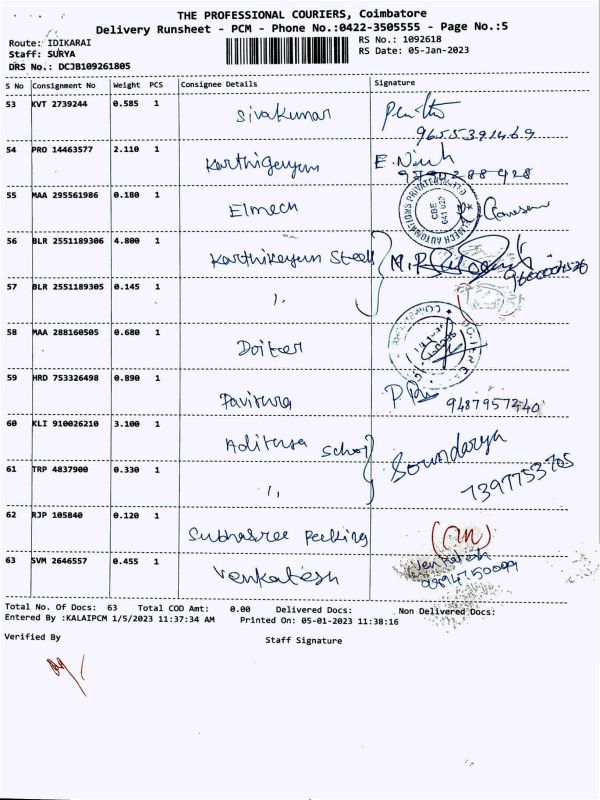 THE PROFESSIONAL COURIERS, Coimbatore
Delivery Runsheet - PCM - Phone No.:0422-3505555 - Page No.:5
Route: IDIKARAI
RS No.: 1092618
Staff: SURYA
RS Date: 05-Jan-2023
DRS No.: DCJB109261805
S No Consignment No Weight PCS Consignee Details Signature
53 KVT 2739244 0.585 1 Sivakumar
9655391469
54 PRO 14463577 2.110 1 Karthigeyan
55 MAA 295561986 0.180 1 Elmech
56 BLR 2551189306 4.800 1 Karthikeyan Steel
57 BLR 2551189305 0.145 1 "
58 MAA 288160505 0.680 1
59 HRD 753326498 0.890 1 Pavithra
9487957240
60 KLI 910026210 3.100 1 Adithya School Soundarya
61 TRP 4837900 0.330 1 "
7397753705
62 RJP 105840 0.120 1 Subhasree
63 SVM 2646557 0.455 1 Venkatesh Venkatesh
Total No. Of Docs: 63 Total COD Amt: 0.00 Delivered Docs: Non Delivered Docs:
Entered By :KALAIPCM 1/5/2023 11:37:34 AM Printed On: 05-01-2023 11:38:16
Verified By
Staff Signature